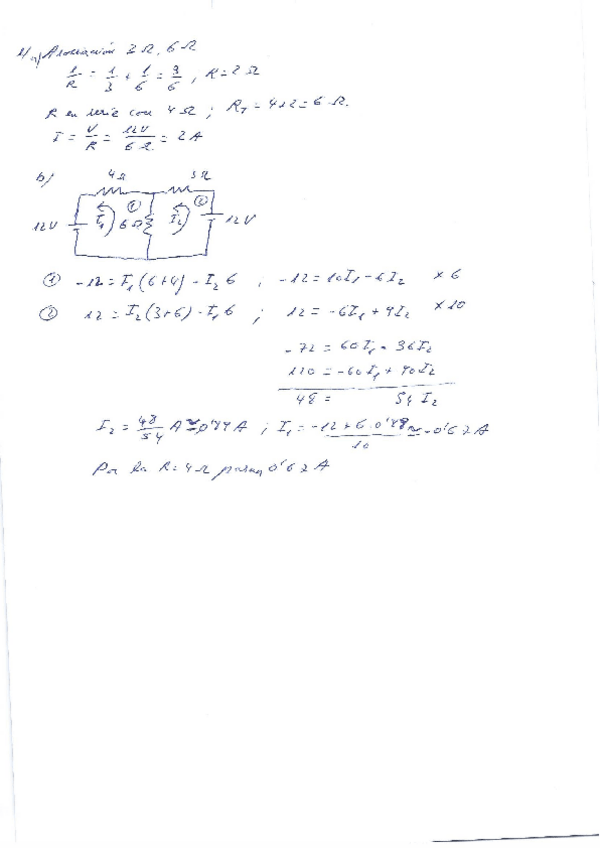 1/ a) Asociación 3 Ω, 6 Ω
1/R = 1/3 + 1/6 = 3/6 ; R = 2 Ω
R en serie con 4 Ω ; R_T = 4+2 = 6 Ω.
I = V/R = 12V/6Ω = 2 A
b)
4Ω 3Ω
12V I₁ ① 6Ω I₂ ② 12V
① -12 = I₁(6+4) - I₂6 ; -12 = 10I₁ - 6I₂ × 6
② 12 = I₂(3+6) - I₁6 ; 12 = -6I₁ + 9I₂ × 10
-72 = 60I₁ - 36I₂
120 = -60I₁ + 90I₂
48 = 54I₂
I₂ = 48/54 A ≃ A ; I₁ = -12+6·0'88/10 ≃ -0'67A
Por la R=4Ω pasan 0'67A